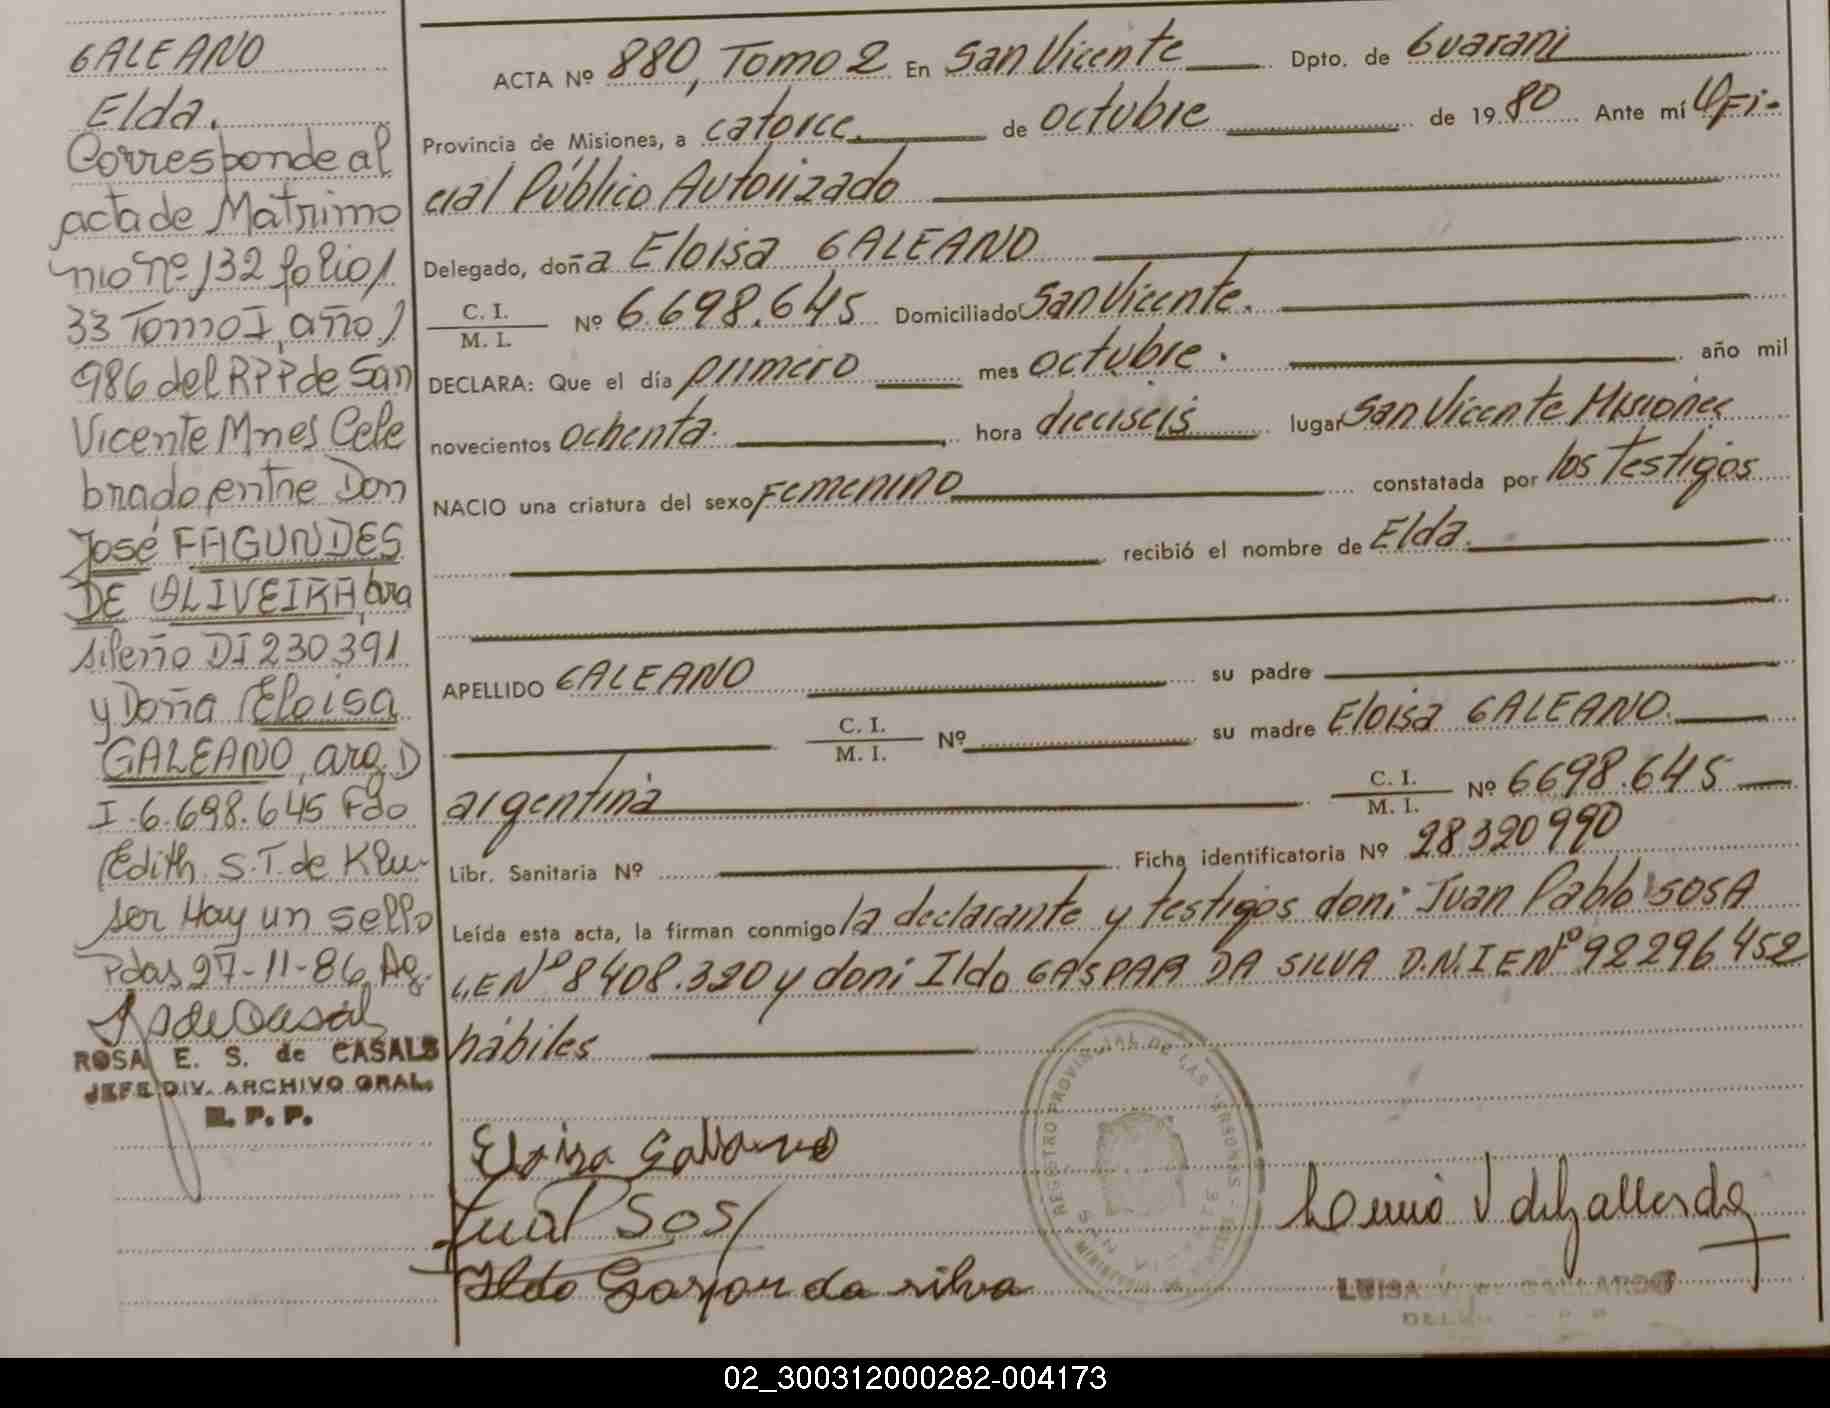 GALEANO
Elda.
Corresponde al
acta de Matrimo
nio nº 132 folio 1
33 Tomo I, año 1
986 del RPP de San
Vicente Mnes Cele
brado, entre Don
José FAGUNDES
DE OLIVEIRA, bra
sileño DI 230391
y Doña Eloisa
GALEANO, arg. D
I. 6.698.645 Fdo
Edith S.T. de Klu-
ser Hay un sello
Pdas 27-11-86, Ag.
ROSA E. S. de CASALS
JEFE DIV. ARCHIVO GRAL.
R. P. P.
ACTA Nº 880, Tomo 2 En San Vicente Dpto. de Guarani
Provincia de Misiones, a catorce. de octubre de 1980 Ante mí Ofi-
cial Público Autorizado
Delegado, doña Eloisa GALEANO
C. I.
M. I. Nº 6.698.645 Domiciliado San Vicente.
DECLARA: Que el día primero mes octubre. año mil
novecientos ochenta. hora dieciseis lugar San Vicente Misiones
NACIO una criatura del sexo Femenino constatada por los Testigos
recibió el nombre de Elda.
APELLIDO GALEANO su padre
C. I.
M. I. Nº su madre Eloisa GALEANO.
argentina C. I.
M. I. Nº 6698.645
Libr. Sanitaria Nº Ficha identificatoria Nº 28320990
Leída esta acta, la firman conmigo la declarante y testigos don: Juan Pablo SOSA
L.E Nº 8408.320 y don: Ildo GASPAR DA SILVA D.N.I E Nº 92296452
hábiles
Eloisa Galiano
Juan P Sosa
Ildo Gaspar da silva
REGISTRO PROVINCIAL DE LAS PERSONAS
LUISA V. de GALLARDO
02_300312000282-004173